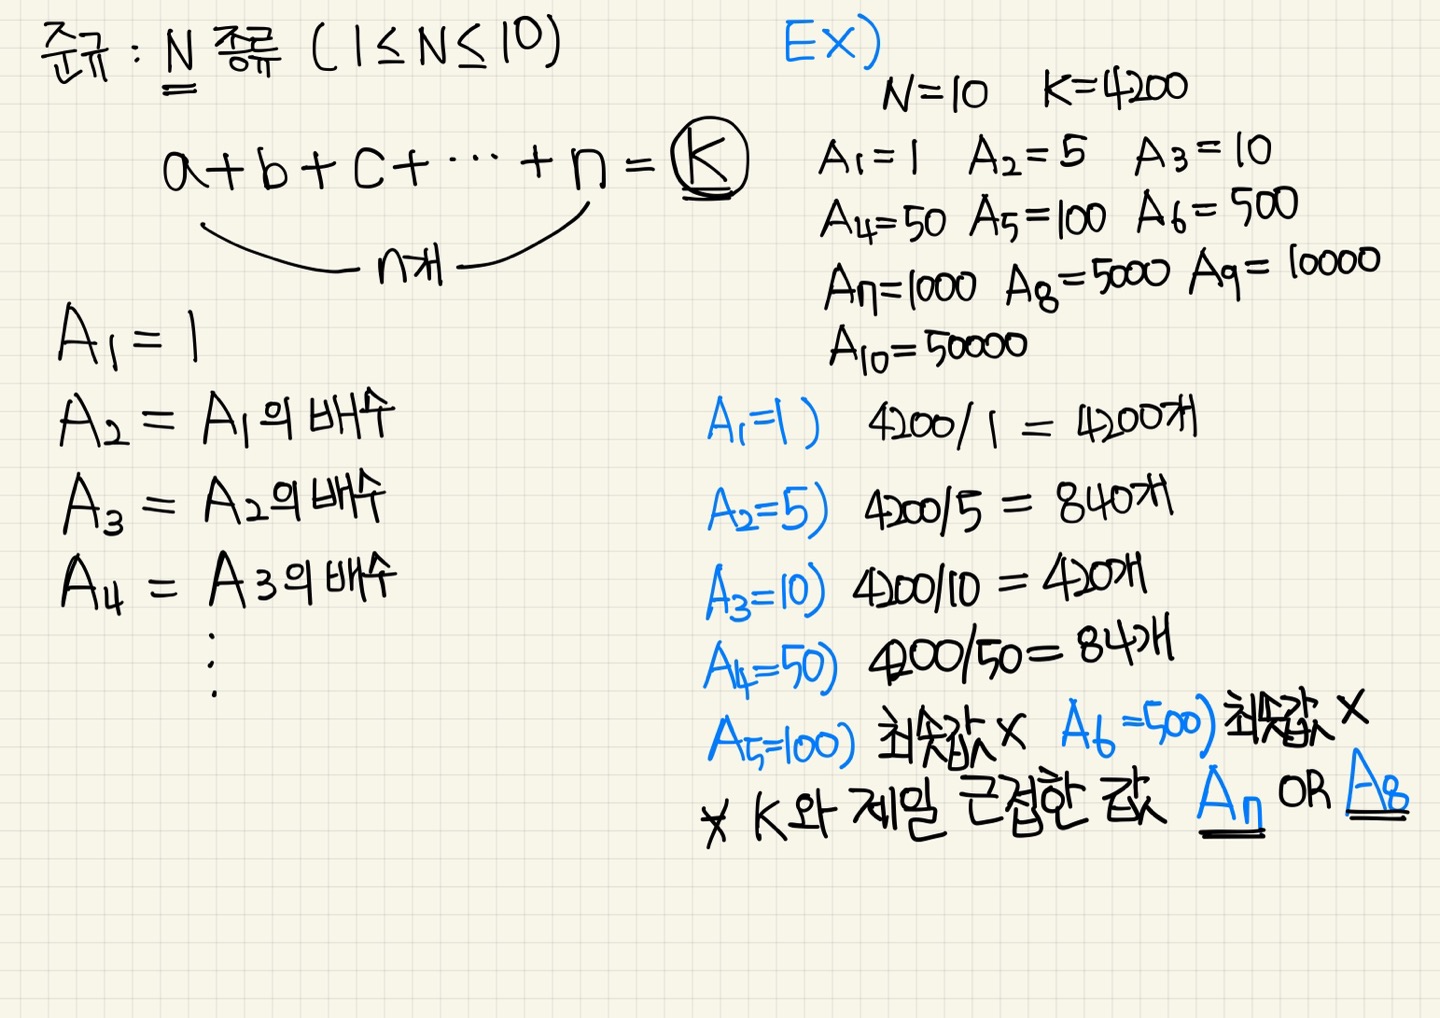 준규 : N 종류 (1≤N≤10)
a+b+c+⋯+n=K
n개
A1=1
A2=A1의 배수
A3=A2의 배수
A4=A3의 배수
⋮
EX)
N=10 K=4200
A1=1 A2=5 A3=10
A4=50 A5=100 A6=500
A7=1000 A8=5000 A9=10000
A10=50000
A1=1) 4200/1=4200개
A2=5) 4200/5=840개
A3=10) 4200/10=420개
A4=50) 4200/50=84개
A5=100) 최솟값 X A6=500) 최솟값 X
* K와 제일 근접한 값 A7 OR A8